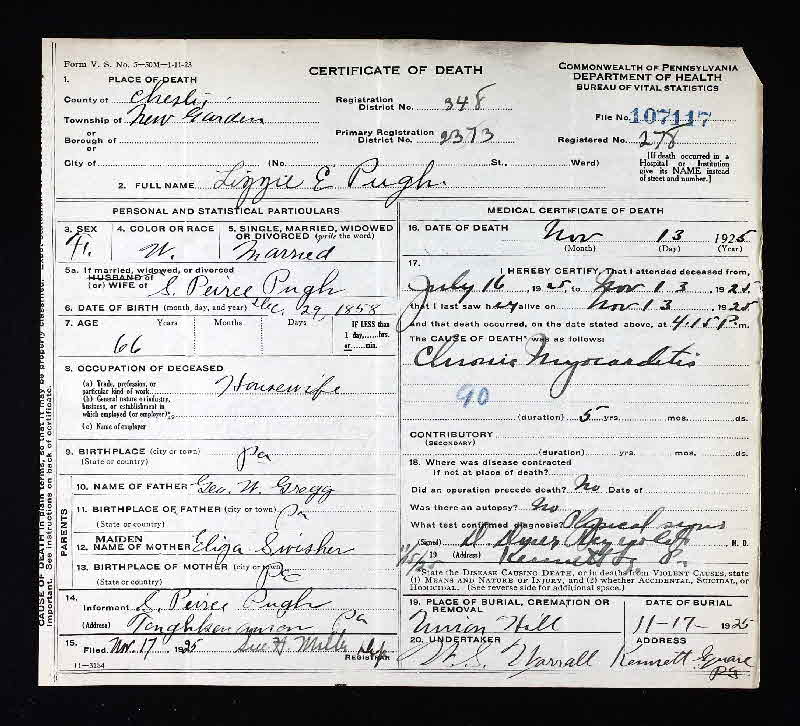 Form V. S. No. 5—50M—1-11-23
CERTIFICATE OF DEATH
COMMONWEALTH OF PENNSYLVANIA
DEPARTMENT OF HEALTH
BUREAU OF VITAL STATISTICS
1. PLACE OF DEATH
County of Chester
Township of New Garden
or
Borough of
or
City of (No. St., Ward)
Registration District No. 348
Primary Registration District No. 2373
File No. 107117
Registered No. 278
[If death occurred in a Hospital or Institution give its NAME instead of street and number.]
2. FULL NAME Lizzie E Pugh.
PERSONAL AND STATISTICAL PARTICULARS
3. SEX F.
4. COLOR OR RACE W.
5. SINGLE, MARRIED, WIDOWED OR DIVORCED (write the word) Married
5a. If married, widowed, or divorced
HUSBAND of
(or) WIFE of S. Peirce Pugh
6. DATE OF BIRTH (month, day, and year) Dec. 29, 1858
7. AGE Years Months Days IF LESS than 1 day,....hrs. or....min.
66
8. OCCUPATION OF DECEASED
(a) Trade, profession, or particular kind of work Housewife
(b) General nature of industry, business, or establishment in which employed (or employer)
(c) Name of employer
9. BIRTHPLACE (city or town) Pa
(State or country)
PARENTS
10. NAME OF FATHER Geo. W. Gregg
11. BIRTHPLACE OF FATHER (city or town) Pa
(State or country)
12. MAIDEN NAME OF MOTHER Eliza Swisher
13. BIRTHPLACE OF MOTHER (city or town) Pa
(State or country)
14. Informant S. Peirce Pugh
(Address) Pa
15. Filed Nov. 17 1925 H Mills
REGISTRAR
11—3134
MEDICAL CERTIFICATE OF DEATH
16. DATE OF DEATH Nov 13 1925
(Month) (Day) (Year)
17. I HEREBY CERTIFY, That I attended deceased from,
July 16, 1925, to Nov 13 1925
that I last saw her alive on Nov 13 1925
and that death occurred, on the date stated above, at 4.15 P m.
The CAUSE OF DEATH* was as follows:
Chronic Myocarditis
90
(duration) 5 yrs. mos. ds.
CONTRIBUTORY
(SECONDARY)
(duration) yrs. mos. ds.
18. Where was disease contracted
if not at place of death?
Did an operation precede death? No Date of
Was there an autopsy? No
What test confirmed diagnosis? Physical signs
(Signed) M. D.
19 (Address) Kennett Sq
*State the DISEASE CAUSING DEATH, or in deaths from VIOLENT CAUSES, state
(1) MEANS AND NATURE OF INJURY, and (2) whether ACCIDENTAL, SUICIDAL, or
HOMICIDAL. (See reverse side for additional space.)
19. PLACE OF BURIAL, CREMATION OR REMOVAL
Union Hill
DATE OF BURIAL
11-17- 1925
20. UNDERTAKER
W. S. Worrall
ADDRESS
Kennett Square
Pa